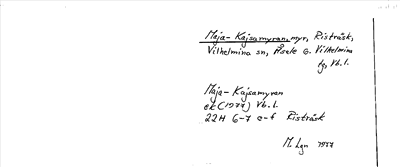 Maja-Kajsamyran, myr, Risträsk,
Vilhelmina sn, Åsele G. Vilhelmina
tg, Vb. l.
Maja-Kajsamyran
ek (1977) Vb. l.
22H 6-7 e-f Risträsk
M. Lgn 1977